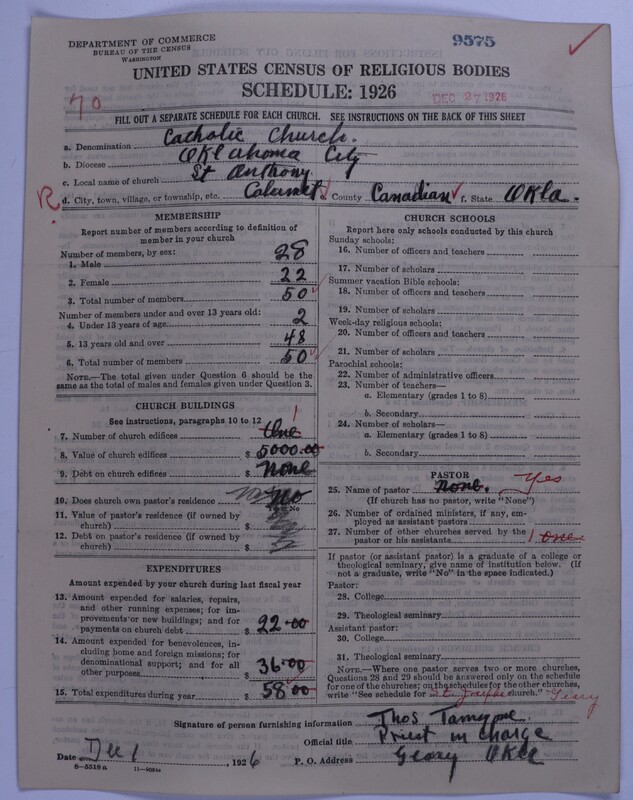 DEPARTMENT OF COMMERCE
BUREAU OF THE CENSUS
WASHINGTON
9575
UNITED STATES CENSUS OF RELIGIOUS BODIES
SCHEDULE: 1926
70
DEC 27 1926
FILL OUT A SEPARATE SCHEDULE FOR EACH CHURCH. SEE INSTRUCTIONS ON THE BACK OF THIS SHEET
a. Denomination Catholic Church.
b. Diocese Oklahoma City
c. Local name of church St Anthony
R d. City, town, village, or township, etc. Calumet e. County Canadian f. State Okla.
MEMBERSHIP
Report number of members according to definition of member in your church
Number of members, by sex:
1. Male 28
2. Female 22
3. Total number of members 50
Number of members under and over 13 years old:
4. Under 13 years of age 2
5. 13 years old and over 48
6. Total number of members 50
NOTE.—The total given under Question 6 should be the same as the total of males and females given under Question 3.
CHURCH BUILDINGS
See instructions, paragraphs 10 to 12
7. Number of church edifices one 1
8. Value of church edifices $ 5000.00
9. Debt on church edifices $ None
10. Does church own pastor's residence No
Yes or No
11. Value of pastor's residence (if owned by church) $
12. Debt on pastor's residence (if owned by church) $
EXPENDITURES
Amount expended by your church during last fiscal year
13. Amount expended for salaries, repairs, and other running expenses; for improvements or new buildings; and for payments on church debt $ 22.00
14. Amount expended for benevolences, including home and foreign missions; for denominational support; and for all other purposes $ 36.00
15. Total expenditures during year $ 58.00
CHURCH SCHOOLS
Report here only schools conducted by this church
Sunday schools:
16. Number of officers and teachers
17. Number of scholars
Summer vacation Bible schools:
18. Number of officers and teachers
19. Number of scholars
Week-day religious schools:
20. Number of officers and teachers
21. Number of scholars
Parochial schools:
22. Number of administrative officers
23. Number of teachers—
a. Elementary (grades 1 to 8)
b. Secondary
24. Number of scholars—
a. Elementary (grades 1 to 8)
b. Secondary
PASTOR
25. Name of pastor None. Yes
(If church has no pastor, write "None")
26. Number of ordained ministers, if any, employed as assistant pastors
27. Number of other churches served by the pastor or his assistants 1 one
If pastor (or assistant pastor) is a graduate of a college or theological seminary, give name of institution below. (If not a graduate, write "No" in the space indicated.)
Pastor:
28. College
29. Theological seminary
Assistant pastor:
30. College
31. Theological seminary
NOTE.—Where one pastor serves two or more churches, Questions 28 and 29 should be answered only on the schedule for one of the churches; on the schedules for the other churches, write "See schedule for St. Josephs church." Geary
Signature of person furnishing information Thos
Official title Priest in charge
Date Dec 1, 1926 P. O. Address Geary Okla
8-5518a 11-9084a